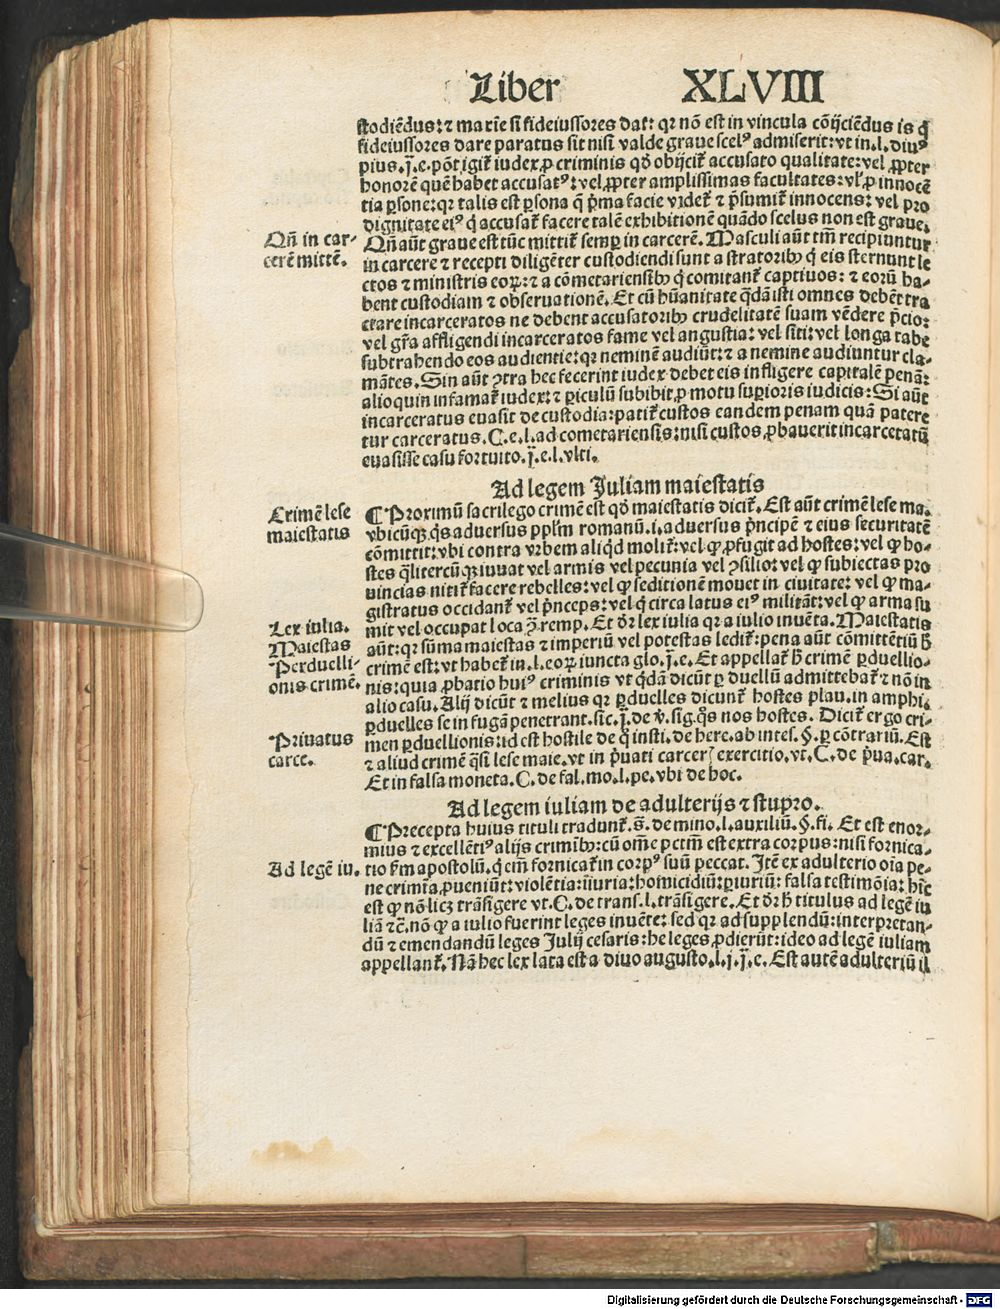 Liber XLVIII
stodiēdus: ⁊ maxīe si fideiussores daƚ: qꝛ nō est in vincula cōijciēdus is q̇
fideiussores dare paratus sit nisi valde graue scelꝰ admiserit: vt in .l. diuꝰ
pius. j̄. e. pōt igiƚ iudex ꝓ criminis qđ obijciƚ accusato qualitate: vel ꝓpter
honorē quē habet accusatꝰ: vel ꝓpter amplissimas facultates: vƚ ꝓ innocē
tia ꝑsone: qꝛ talis est ꝑsona q̄ p̄ma facie videƚ ⁊ p̄sumiƚ innocens: vel pro
dignitate eiꝰ q̇ accusaƚ facere talē exhibitionē quādo scelus non est graue.
Qn̄ in car-
cerē mittē.
Qn̄ aūt graue est tūc mittiƚ semꝑ in carcerē. Masculi aūt tm̄ recipiuntur
in carcere ⁊ recepti diligēter custodiendi sunt a stratoribꝫ q̇ eis sternunt le
ctos ⁊ ministris eoꝝ: ⁊ a cōmetariensibꝫ q̇ comitanƚ captiuos: ⁊ eorū ha-
bent custodiam ⁊ obseruationē. Et cū hūanitate q̄dā isti omnes debēt tra
ctare incarceratos ne debent accusatoribꝫ crudelitatē suam vēdere p̄cio:
vel gr̄a affligendi incarceratos fame vel angustia: vel siti: vel longa tabe
subtrahendo eos audientie: qꝛ neminē audiūt: ⁊ a nemine audiuntur cla-
mātes. Sin aūt ꝯtra hec fecerint iudex debet eis infligere capitalē penā:
alioquin infamaƚ iudex: ⁊ ꝑiculū subibit ꝓ motu suꝑioris iudicis: Si aūt
incarceratus euasit de custodia: patiƚ custos eandem penam quā patere
tur carceratus. C. e. l. ad cometariensis: nisi custos ꝓbauerit incarceratū
euasisse casu fortuito. j̄. e. l. vlti.
Ad legem Juliam maiestatis
Crimē lese
maiestatis
¶ Proximū sacrilego crimē est qđ maiestatis diciƚ. Est aūt crimē lese ma.
vbicūqꝫ q̇s aduersus pplm̄ romanū. i. aduersus ṗncipē ⁊ eius securitatē
cōmittit: vbi contra vrbem aliq̇d moliƚ: vel ꝙ ꝓfugit ad hostes: vel ꝙ ho-
stes q̄litercūqꝫ iuuat vel armis vel pecunia vel ꝯsilio: vel ꝙ subiectas pro
uincias nitiƚ facere rebelles: vel ꝙ seditionē mouet in ciuitate: vel ꝙ ma-
gistratus occidanƚ vel ṗnceps: vel q̇ circa latus eiꝰ militāt: vel ꝙ arma su
Lex iulia.
Maiestas
Perduelli-
onis crimē.
mit vel occupat loca ꝯ̄ remp. Et dr̄ lex iulia qꝛ a iulio inuēta. Maiestatis
aūt: qꝛ sūma maiestas ⁊ imperiū vel potestas lediƚ: pena aūt cōmittētiū h̄
crimē est: vt habeƚ in .l. eoꝝ iuncta glo. j̄. e. Et appellaƚ h̄ crimē ꝑduellio-
nis: quia ꝓbatio huiꝰ criminis vt q̇dā dicūt ꝑ duellū admittebaƚ ⁊ nō in
alio casu. Alij dicūt ⁊ melius qꝛ ꝑduelles dicunƚ hostes plau. in amphi.
ꝑduelles se in fugā penetrant. sic. j̄. de v̄. sig. q̇s nos hostes. Diciƚ ergo cri-
Priuatus
carce.
men ꝑduellionis: id est hostile de q̇ insti. de here. ab intes. §. ꝑ cōtrariū. Est
⁊ aliud crimē q̄si lese maie. vt in ṗuati carceꝝ exercitio. vt. C. de ṗua. car.
Et in falsa moneta. C. de fal. mo. l. pe. vbi de hoc.
Ad legem iuliam de adulterijs ⁊ stupro.
¶ Precepta huius tituli tradunƚ. s̄. de mino. l. auxiliū. §. fi. Et est enor-
mius ⁊ excellētiꝰ alijs crimībꝫ: cū om̄e pctm̄ est extra corpus: nisi fornica-
Ad legē iu.
tio k̄m apostolū. q̇ em̄ fornicaƚ in corpꝰ suū peccat. Itē ex adulterio oīa pe-
ne crimīa ꝓueniūt: violētia: iīuria: homicidiū: ꝑiuriū: falsa testimōia: hīc
est ꝙ nō licꝫ trāsigere vt. C. de trans. l. trāsigere. Et dr̄ h̄ titulus ad legē iu
liā ⁊c̄. nō ꝙ a iulio fuerint leges inuēte: sed qꝛ ad supplendū: interpretan-
dū ⁊ emendandū leges Julij cesaris: he leges ꝓdierūt: ideo ad legē iuliam
appellanƚ. Nā hec lex lata est a diuo augusto. l. j. j̄. e. Est autē adulteriū il
Digitalisierung gefördert durch die Deutsche Forschungsgemeinschaft - DFG